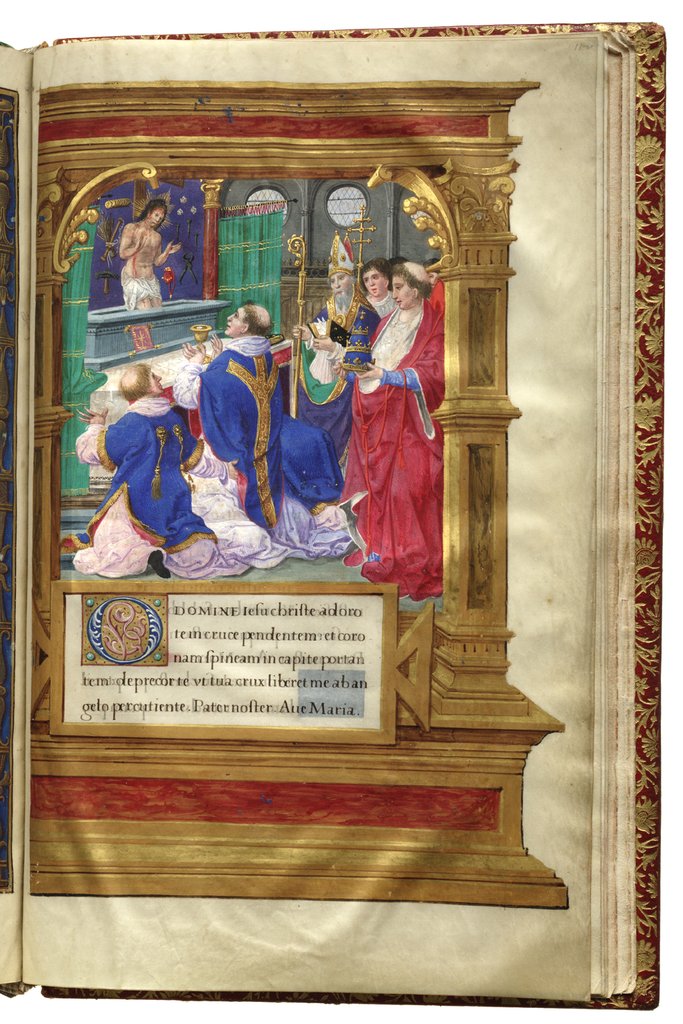 O DOMINE Iesu christe adoro
te in cruce pendentem et coro
nam spineam in capite portan
tem deprecor te vt tua crux liberet me ab an
gelo percutiente. Pater noster. Aue Maria.